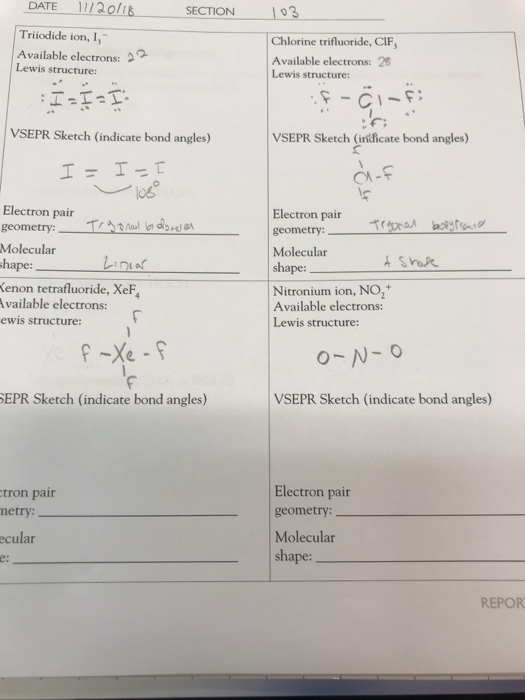 DATE 11/20/18 SECTION 103
Triiodide ion, I3-
Available electrons: 22
Lewis structure:
:I=I=I:
VSEPR Sketch (indicate bond angles)
I = I = I
108°
Electron pair
geometry:
Molecular
shape: Liniar
Chlorine trifluoride, ClF3
Available electrons: 28
Lewis structure:
:F - Cl - F:
:F:
VSEPR Sketch (indicate bond angles)
F
Cl-F
F
Electron pair
geometry: Trgonal
Molecular
shape:
Xenon tetrafluoride, XeF4
Available electrons:
ewis structure:
F
Xe F - Xe - F
F
SEPR Sketch (indicate bond angles)
ctron pair
metry:
ecular
e:
Nitronium ion, NO2+
Available electrons:
Lewis structure:
O-N-O
VSEPR Sketch (indicate bond angles)
Electron pair
geometry:
Molecular
shape:
REPOR